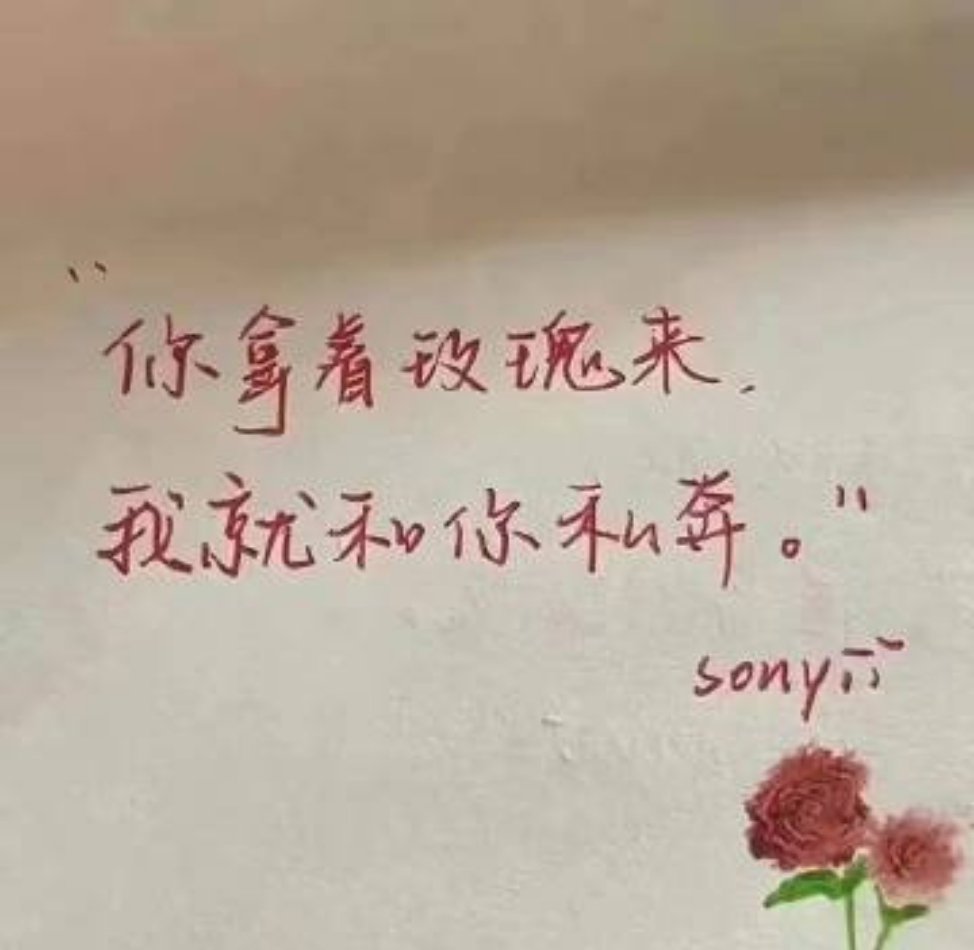 “你拿着玫瑰来,
我就和你私奔。”
sony